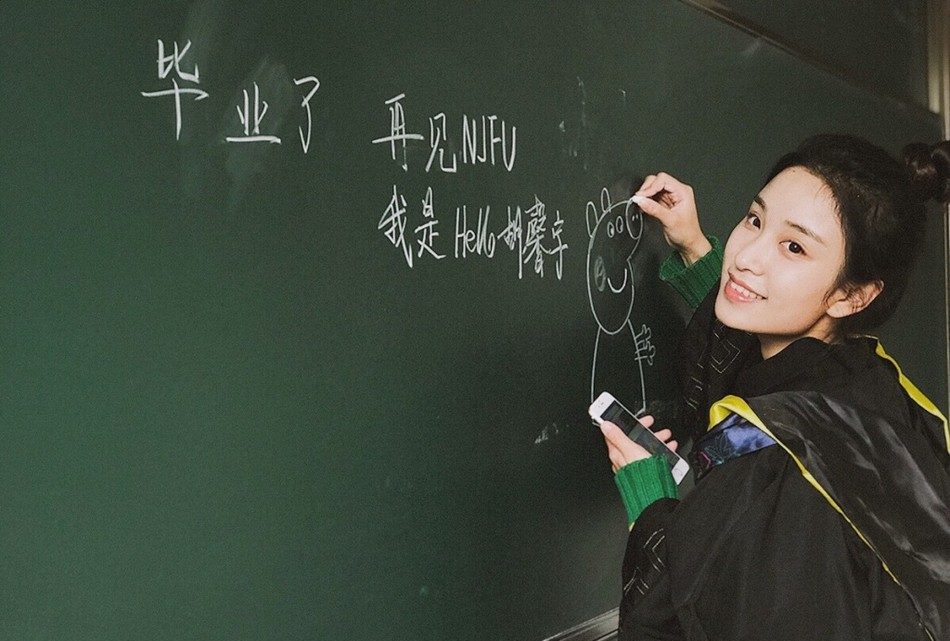 毕业了
再见NJFU
我是Hello胡馨宇